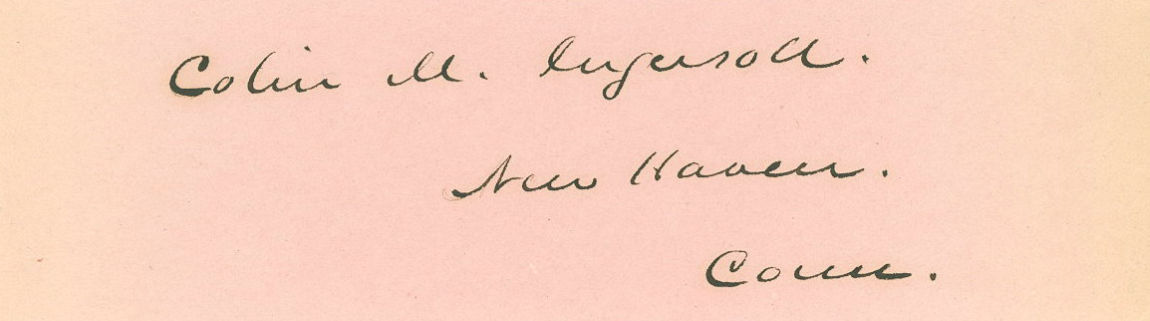 Colin M. Ingersoll.
New Haven.
Conn.